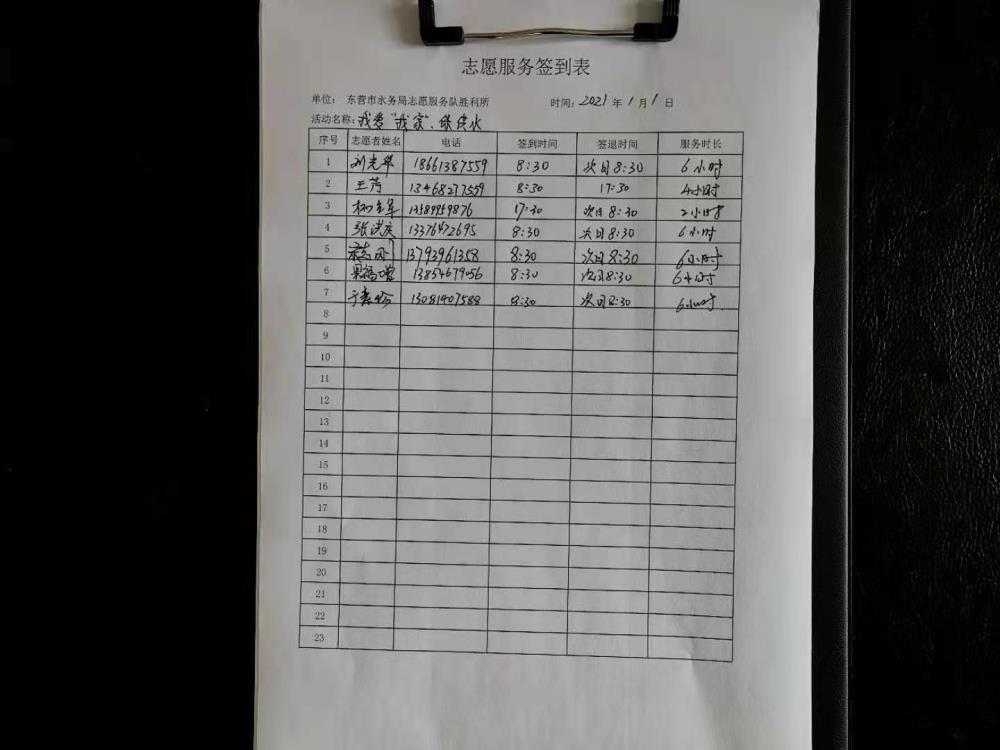 志愿服务签到表
单位: 东营市水务局志愿服务队胜利所 时间: 2021 年 1 月 1 日
活动名称: 我爱"我家"、保供水
序号 志愿者姓名 电话 签到时间 签退时间 服务时长
1 刘光华 18661387559 8:30 次日8:30 6小时
2 王芮 13468277559 8:30 17:30 4小时
3 13589959876 17:30 次日8:30 2小时
4 张洪庆 13376472695 8:30 次日8:30 6小时
5 13793961358 8:30 次日8:30 6小时
6 13854679056 8:30 次日8:30 6小时
7 13081407588 8:30 次日8:30 6小时
8
9
10
11
12
13
14
15
16
17
18
19
20
21
22
23